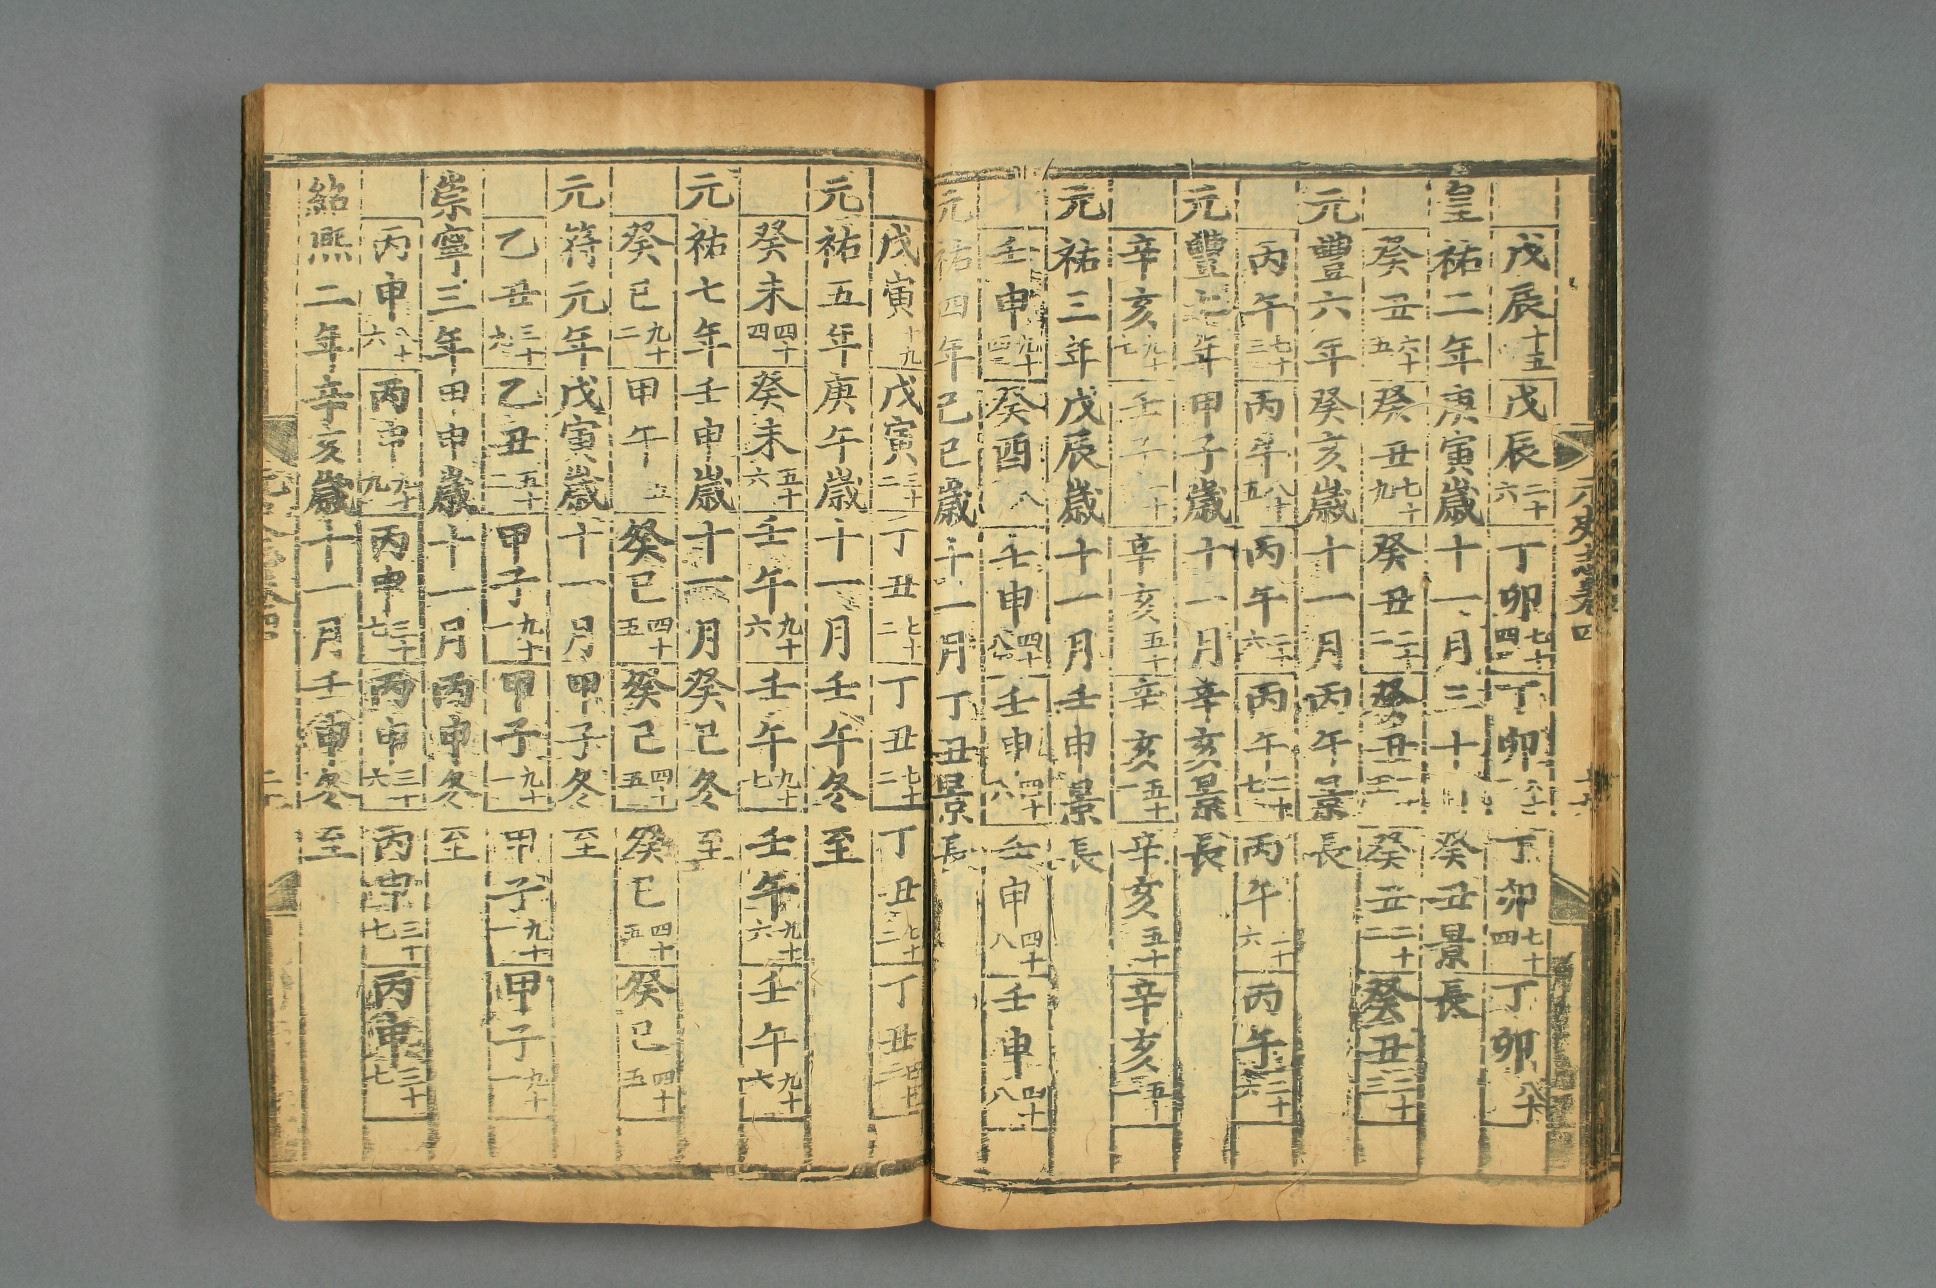 戊辰十五 戊辰二十六 丁卯七十四 丁卯八十 丁卯七十四 丁卯八十
皇祐二年庚寅歲十一月三十日癸丑景長
癸丑六十五 癸丑七十九 癸丑二十二 癸丑 癸丑二十二 癸丑二十三
元豐六年癸亥歲十一月丙午景長
丙午七十三 丙午八十五 丙午二十六 丙午二十七 丙午二十六 丙午二十六
元豐七年甲子歲十一月辛亥景長
辛亥九十七 壬子 辛亥五十 辛亥五十一 辛亥五十 辛亥五十一
元祐三年戊辰歲十一月壬申景長
壬申九十四 癸酉八 壬申四十八 壬申四十八 壬申四十八 壬申四十八
元祐四年己巳歲十一月丁丑景長
戊寅十九 戊寅三十二 丁丑七十二 丁丑七十二 丁丑七十二 丁丑
元祐五年庚午歲十一月壬午冬至
癸未四十四 癸未五十六 壬午九十六 壬午九十七 壬午九十六 壬午九十六
元祐七年壬申歲十一月癸巳冬至
癸巳九十二 甲午五 癸巳四十五 癸巳四十五 癸巳四十五 癸巳四十五
元符元年戊寅歲十一月甲子冬至
乙丑三十九 乙丑五十二 甲子九十一 甲子九十一 甲子九十一 甲子九十一
崇寧三年甲申歲十一月丙申冬至
丙申八十六 丙申九十九 丙申三十七 丙申三十六 丙申三十七 丙申三十七
紹熙二年辛亥歲十一月壬申冬至